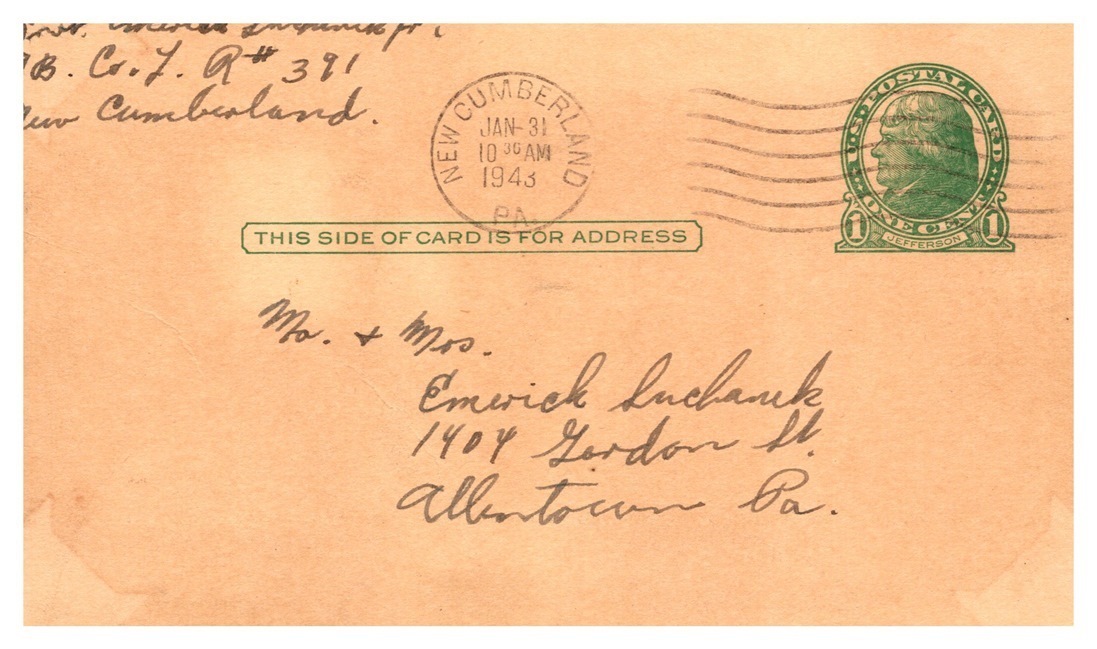 Emerick Suchanek Jr.
B. Co. L. R# 391
New Cumberland.
NEW CUMBERLAND
JAN 31
10 30 AM
1943
PA.
U.S. POSTAL CARD
ONE CENT
1 JEFFERSON 1
THIS SIDE OF CARD IS FOR ADDRESS
Mr. + Mrs.
Emerick Suchanek
1404 Gordon St.
Allentown Pa.